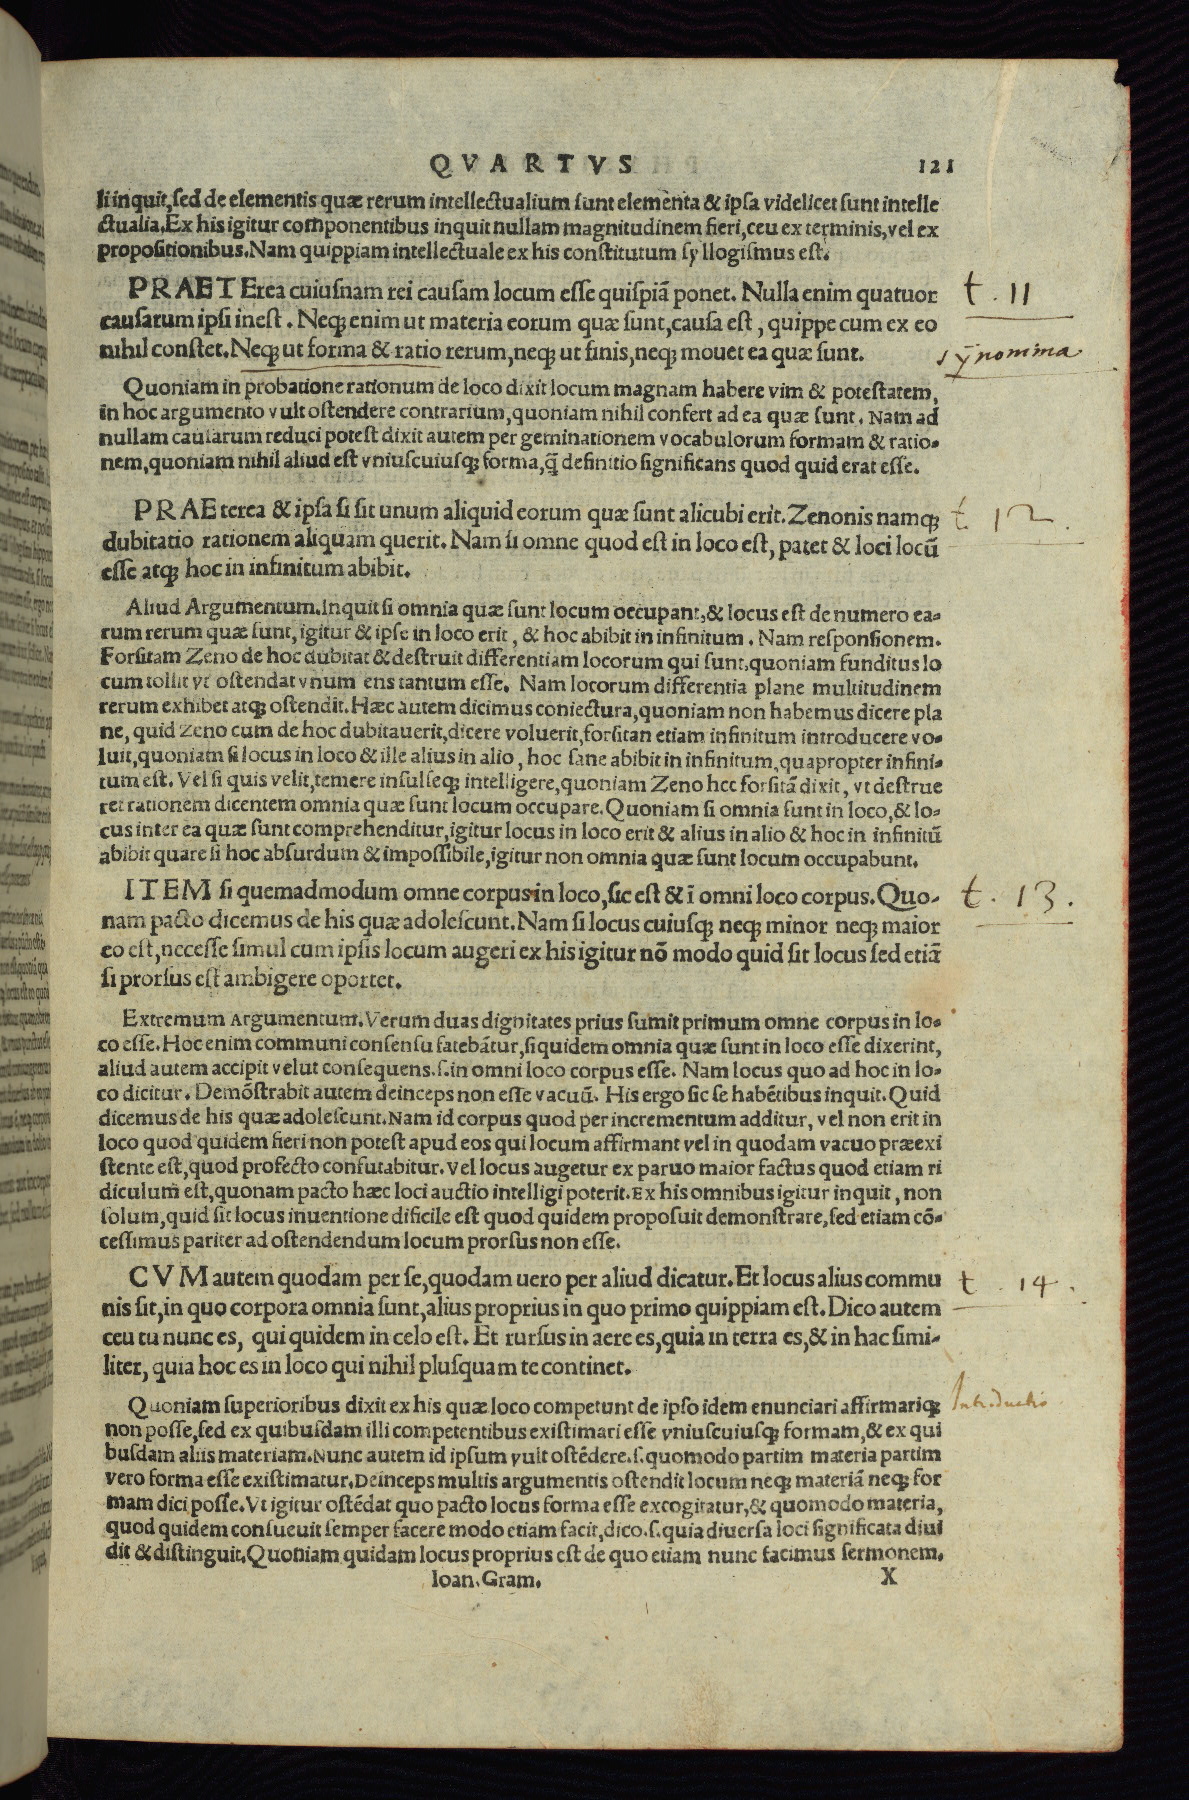 QVARTVS 121
li inquit, sed de elementis quæ rerum intellectualium sunt elementa & ipsa videlicet sunt intelle
ctualia. Ex his igitur componentibus inquit nullam magnitudinem fieri, ceu ex terminis, vel ex
propositionibus. Nam quippiam intellectuale ex his constitutum syllogismus est.
PRAETErea cuiusnam rei causam locum esse quispiā ponet. Nulla enim quatuor
t. 11
causarum ipsi inest. Neqꝫ enim ut materia eorum quæ sunt, causa est, quippe cum ex eo
nihil constet. Neqꝫ ut forma & ratio rerum, neqꝫ ut finis, neqꝫ mouet ea quæ sunt.
synomima
Quoniam in probatione rationum de loco dixit locum magnam habere vim & potestatem,
in hoc argumento vult ostendere contrarium, quoniam nihil confert ad ea quæ sunt. Nam ad
nullam causarum reduci potest dixit autem per geminationem vocabulorum formam & ratio-
nem, quoniam nihil aliud est vniuscuiusqꝫ forma, q̄ definitio significans quod quid erat esse.
PRAEterea & ipsa si sit unum aliquid eorum quæ sunt alicubi erit. Zenonis namqꝫ
t. 12.
dubitatio rationem aliquam querit. Nam si omne quod est in loco est, patet & loci locū
esse atqꝫ hoc in infinitum abibit.
Aliud Argumentum. Inquit si omnia quæ sunt locum occupant, & locus est de numero ea-
rum rerum quæ sunt, igitur & ipse in loco erit, & hoc abibit in infinitum. Nam responsionem.
Forsitam Zeno de hoc dubitat & destruit differentiam locorum qui sunt, quoniam funditus lo
cum tollit vt ostendat vnum ens tantum esse. Nam locorum differentia plane multitudinem
rerum exhibet atqꝫ ostendit. Hæc autem dicimus coniectura, quoniam non habemus dicere pla
ne, quid Zeno cum de hoc dubitauerit, dicere voluerit, forsitan etiam infinitum introducere vo-
luit, quoniam si locus in loco & ille alius in alio, hoc sane abibit in infinitum, quapropter infini-
tum est. Vel si quis velit, temere insulseqꝫ intelligere, quoniam Zeno hec forsitā dixit, vt destrue
ret rationem dicentem omnia quæ sunt locum occupare. Quoniam si omnia sunt in loco, & lo-
cus inter ea quæ sunt comprehenditur, igitur locus in loco erit & alius in alio & hoc in infinitū
abibit quare si hoc absurdum & impossibile, igitur non omnia quæ sunt locum occupabunt.
ITEM si quemadmodum omne corpus in loco, sic est & ī omni loco corpus. Quo-
t. 13.
nam pacto dicemus de his quæ adolescunt. Nam si locus cuiusqꝫ neqꝫ minor neqꝫ maior
eo est, necesse simul cum ipsis locum augeri ex his igitur nō modo quid sit locus sed etiā
si prorsus est ambigere oportet.
Extremum Argumentum. Verum duas dignitates prius sumit primum omne corpus in lo-
co esse. Hoc enim communi consensu fatebātur, siquidem omnia quæ sunt in loco esse dixerint,
aliud autem accipit velut consequens. s. in omni loco corpus esse. Nam locus quo ad hoc in lo-
co dicitur. Demōstrabit autem deinceps non esse vacuū. His ergo sic se habētibus inquit. Quid
dicemus de his quæ adolescunt. Nam id corpus quod per incrementum additur, vel non erit in
loco quod quidem fieri non potest apud eos qui locum affirmant vel in quodam vacuo præexi
stente est, quod profecto confutabitur. Vel locus augetur ex paruo maior factus quod etiam ri
diculum est, quonam pacto hæc loci auctio intelligi poterit. Ex his omnibus igitur inquit, non
solum, quid sit locus inuentione dificile est quod quidem proposuit demonstrare, sed etiam cō-
cessimus pariter ad ostendendum locum prorsus non esse.
CVM autem quodam per se, quodam uero per aliud dicatur. Et locus alius commu
t. 14.
nis sit, in quo corpora omnia sunt, alius proprius in quo primo quippiam est. Dico autem
ceu tu nunc es, qui quidem in celo est. Et rursus in aere es, quia in terra es, & in hac simi-
liter, quia hoc es in loco qui nihil plusquam te continet.
Quoniam superioribus dixit ex his quæ loco competunt de ipso idem enunciari affirmariqꝫ
Introductio
non posse, sed ex quibusdam illi competentibus existimari esse vniuscuiusqꝫ formam, & ex qui
busdam aliis materiam. Nunc autem id ipsum vult ostēdere. s. quomodo partim materia partim
vero forma esse existimatur. Deinceps multis argumentis ostendit locum neqꝫ materiā neqꝫ for
mam dici posse. Vt igitur ostēdat quo pacto locus forma esse excogitatur, & quomodo materia,
quod quidem consueuit semper facere modo etiam facit, dico. s. quia diuersa loci significata diui
dit & distinguit. Quoniam quidam locus proprius est de quo etiam nunc facimus sermonem.
Ioan. Gram. X